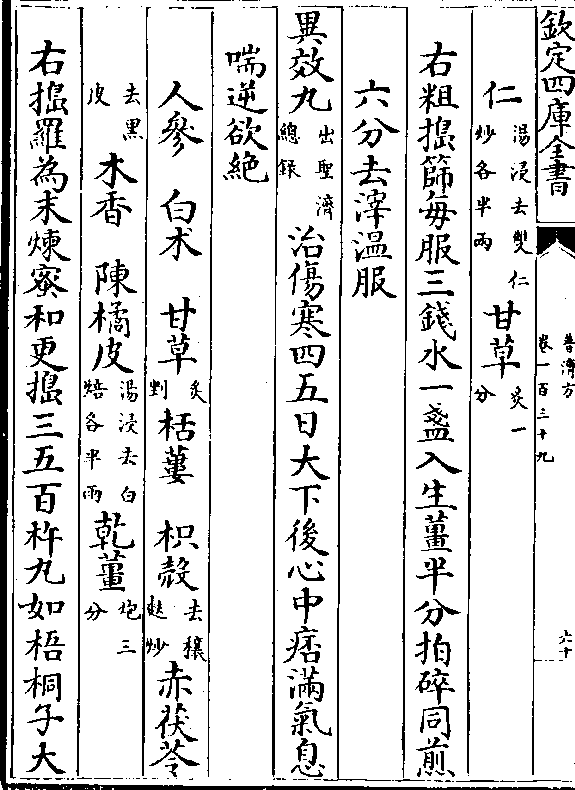 欽定四庫全書
普濟方
卷一百三十九
六十
仁湯浸去雙仁炒各半兩 甘草炙一分
右粗搗篩每服三錢水一盞入生薑半分拍碎同煎
六分去滓溫服
異效丸出聖濟總錄 治傷寒四五日大下後心中痞滿氣息
喘逆欲絶
人參 白术 甘草炙剉 栝蔞 枳殻去穰麩炒 赤茯苓
去黑皮 木香 陳橘皮湯浸去白焙各半兩 乾薑炮三分
右搗羅為末煉蜜和更搗三五百杵丸如梧桐子大